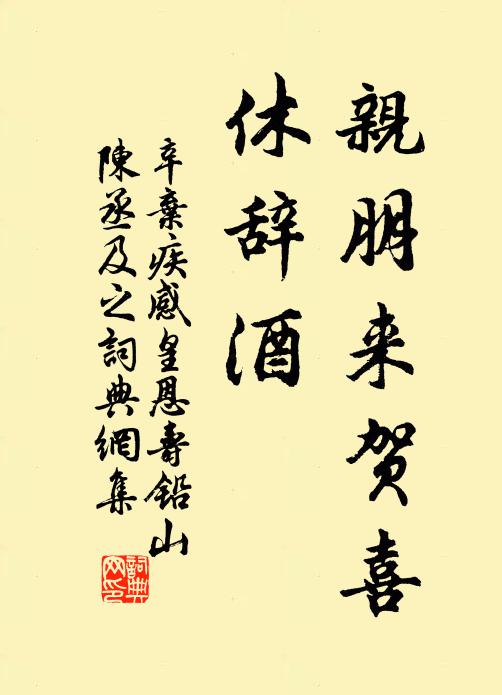 親朋来贺喜
休辞酒
辛棄疾感皇恩壽鉛山
陳丞及之詞典網集
詞典
网印